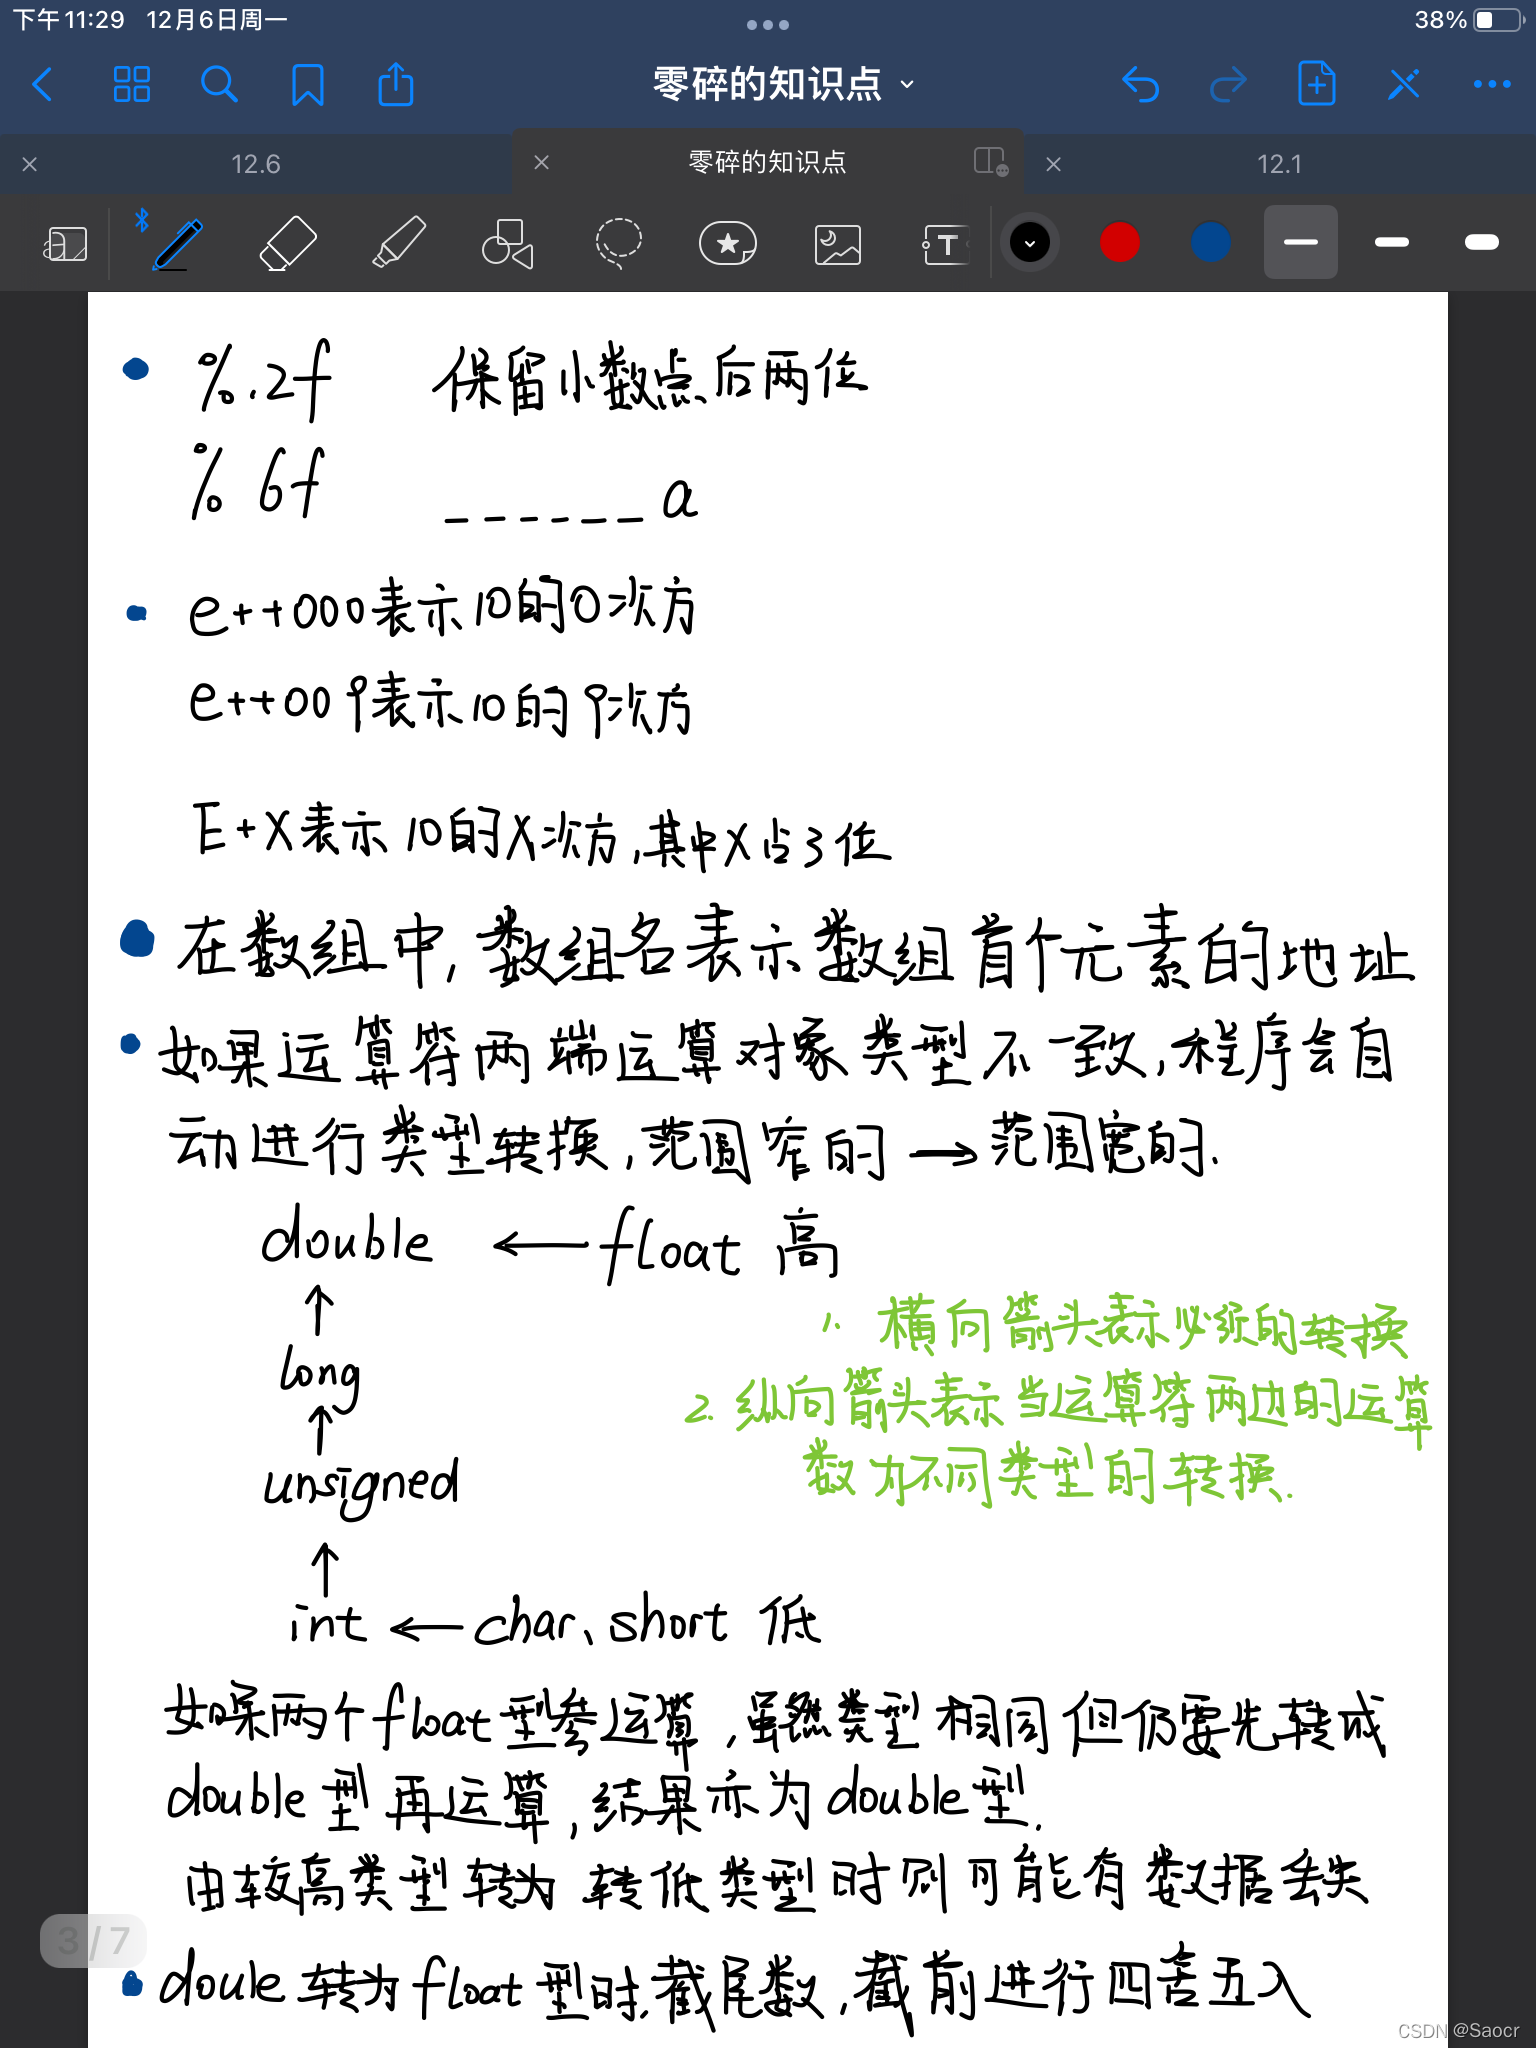 下午11:29 12月6日周一
38%
零碎的知识点
12.6
零碎的知识点
12.1
%.2f 保留小数点后两位
% 6f ______a
e++000表示10的0次方
e++009表示10的9次方
E+X表示10的X次方,其中X占3位
在数组中,数组名表示数组首个元素的地址
如果运算符两端运算对象类型不一致,程序会自
动进行类型转换,范围窄的→范围宽的.
double ← float 高
↑
1. 横向箭头表示必须的转换
long
2. 纵向箭头表示当运算符两边的运算
↑
数为不同类型的转换.
unsigned
↑
int ← char、short 低
如果两个float型参运算,虽然类型相同但仍要先转成
double型再运算,结果亦为double型.
由较高类型转为转低类型时则可能有数据丢失
3/7
doule转为float型时.截尾数,截前进行四舍五入
CSDN @Saocr